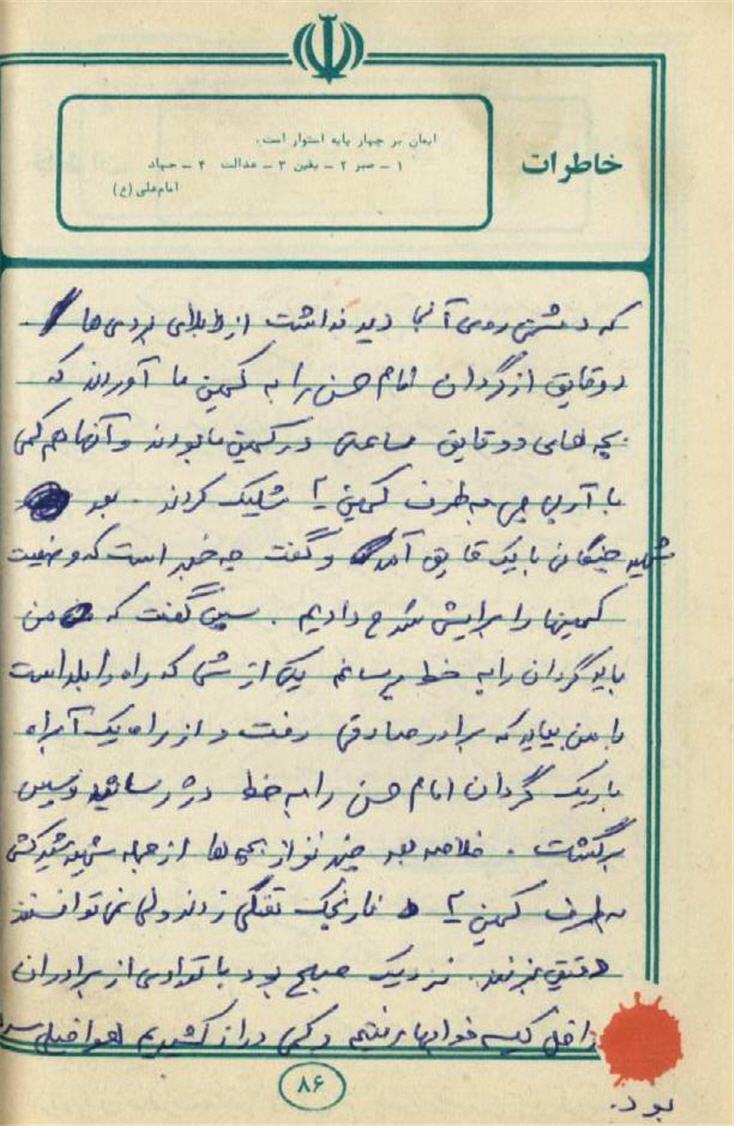 خاطرات
ایمان بر چهار پایه استوار است.
۱ ـ صبر ۲ ـ یقین ۳ ـ عدالت ۴ ـ جهاد
امام‌علی (ع)
که دشمن روی آنجا دید نداشت از لابلای بردی‌ها
دو قایق از گردان امام حسن را به کمین ما آوردند که
بچه‌های دو قایق ساعتی در کمین ما بودند و آنها هم کمی
با آرپی جی به طرف کمین شلیک کردند . بعد
شهید با یک قایق آمد و گفت چه خبر است که وضعیت
کمینها را برایش شرح دادیم . سپس گفت که من
باید گردان را به خط برسانم یکی از شما که راه را بلد است
با من بیاید که برادر صادقی رفت و از راه یک آبراه
باریک گردان امام حسن را به خط دژ رساند و سپس
برگشت . خلاصه بعد چند نفر از بچه‌ها از جمله شهید
به طرف کمین نارنجک تفنگی زدند ولی نمی‌توانستند
دقیق بزنند . نزدیک صبح بود با تعدادی از برادران
داخل کیسه خوابها رفتیم و کمی دراز کشیدیم هوا خیلی سرد
بود.
۸۶